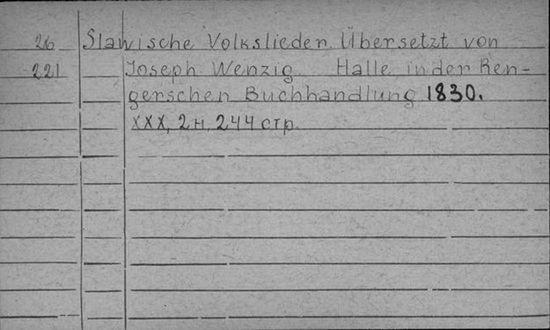 26 Slawische Volkslieder. Übersetzt von
221 Joseph Wenzig. Halle, in der Ren-
gerschen Buchhandlung 1830.
XXX, 2н, 244 стр.